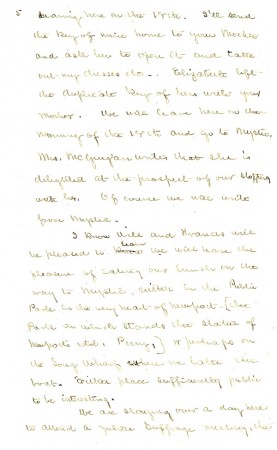 5 leaving here on the 18th. I'll send
the key of mine home to your Mother
and ask her to open it and take
out my dresses etc. Elizabeth left
the duplicate key of hers with your
Mother. We will leave here on the
morning of the 18th and go to Mystic.
Mrs. McGuigan writes that she is
delighted at the prospect of our stopping
with her. Of course we will write
from Mystic.
I know Will and Frances will
be pleased to learn we will have the
pleasure of eating our lunch on the
way to Mystic, either in the Public
Park in the very heart of Newport [the
Park on which stands the statue of
Newport's Perry,] or perhaps on
the Long Wharf where we take the
boat. Either place sufficiently public
to be interesting.
We are staying over a day here
to attend a Suffrage meeting, the